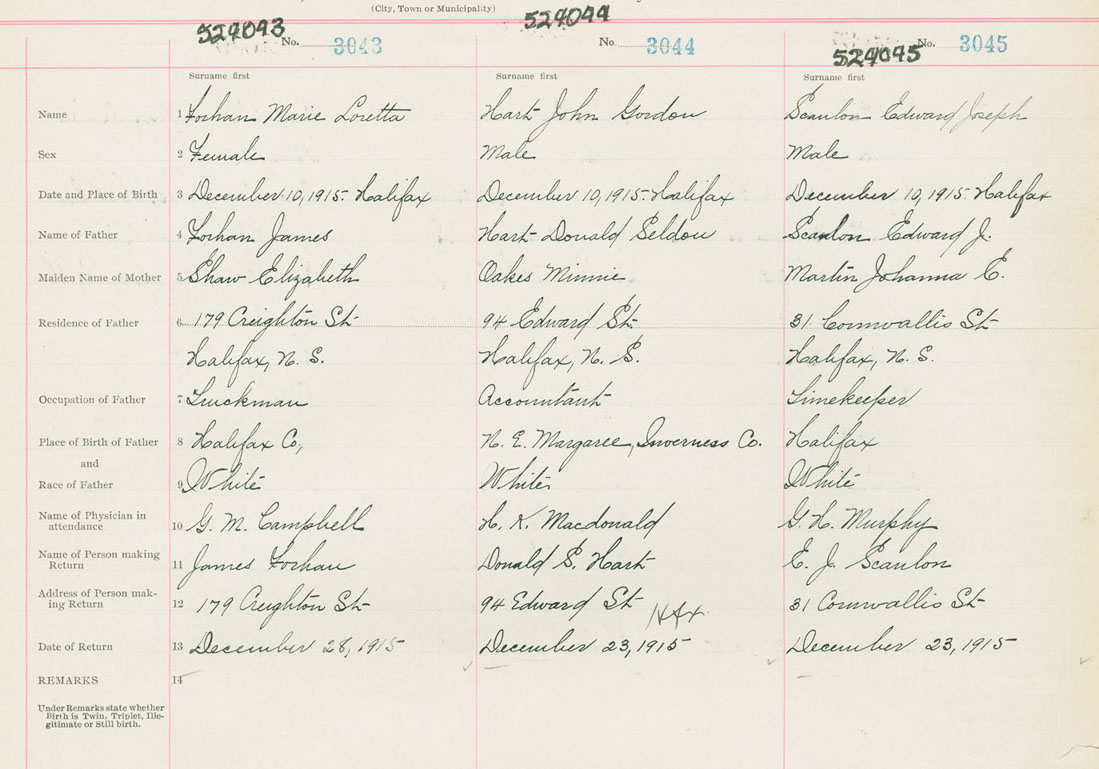 (City, Town or Municipality)
524043 524044 524045
No. 3043 No. 3044 No. 3045
Surname first Surname first Surname first
Name 1 Forhan Marie Loretta Hart John Gordon Scanlon Edward Joseph
Sex 2 Female Male Male
Date and Place of Birth 3 December 10, 1915- Halifax December 10, 1915- Halifax December 10, 1915- Halifax
Name of Father 4 Forhan James Hart Donald Seldon Scanlon Edward J.
Maiden Name of Mother 5 Shaw Elizabeth Oakes Minnie Martin Johanna C.
Residence of Father 6 179 Creighton St 94 Edward St. 31 Cornwallis St
Halifax, N. S. Halifax, N. S. Halifax, N. S.
Occupation of Father 7 Truckman Accountant Timekeeper
Place of Birth of Father 8 Halifax Co, N. E. Margaree, Inverness Co. Halifax
and
Race of Father 9 White White White
Name of Physician in
attendance 10 G. M. Campbell H. K. Macdonald G. H. Murphy
Name of Person making
Return 11 James Forhan Donald S. Hart E. J. Scanlon
Address of Person mak-
ing Return 12 179 Creighton St 94 Edward St Hfx. 31 Cornwallis St
Date of Return 13 December 28, 1915 December 23, 1915 December 23, 1915
REMARKS 14
Under Remarks state whether
Birth is Twin, Triplet, Ille-
gitimate or Still birth.